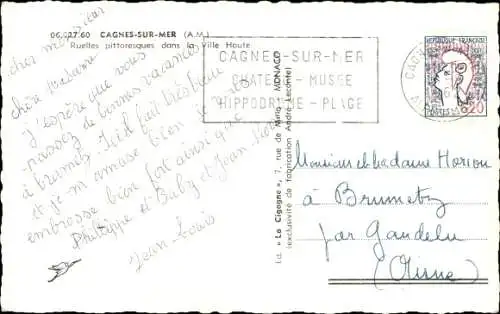 06.027.60 CAGNES-SUR-MER (A.M.)
Ruelles pittoresques dans la Ville Haute
cher monsieur
chère madame
j'espère que vous
passez de bonnes vacances
à brumetz. Ici il fait très beau
et je m'amuse bien je vous
embrasse bien fort ainsi que
Philippe et Baby et Jean
Jean-Louis
CAGNES-SUR-MER
CHATEAU - MUSEE
HIPPODROME - PLAGE
La « La Cigogne », 7, rue de Millo - MONACO
(exclusivité de fabrication André Leconte)
REPUBLIQUE FRANÇAISE
POSTES
0,20
CAGNES
Monsieur et Madame Horiou
à Brumetz
par Gandelu
(Aisne)